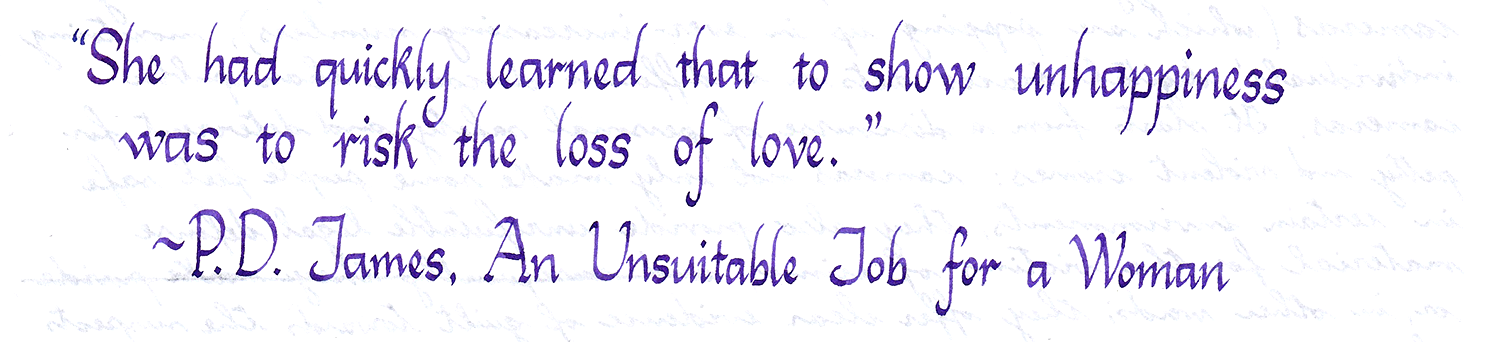 “She had quickly learned that to show unhappiness
was to risk the loss of love.”
~P.D. James, An Unsuitable Job for a Woman